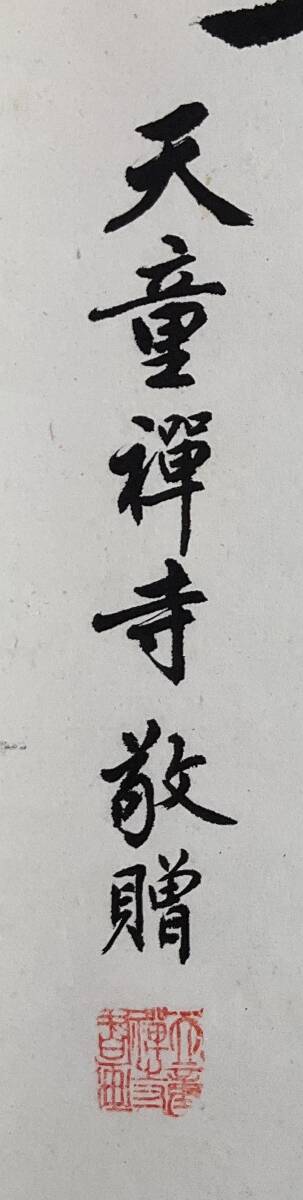 天童禪寺敬贈